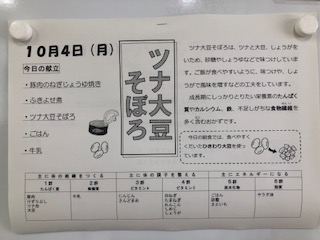 10月4日（月）
今日の献立
・豚肉のねぎじょうゆ焼き
・ふきよせ煮
・ツナ大豆そぼろ
・ごはん
・牛乳
ツナ大豆
そぼろ
ツナ大豆そぼろは、ツナと大豆、しょうがを
いため、砂糖やしょうゆなどで味つけしていま
す。ご飯が食べやすいように、味つけや、しょう
がで風味を増すなどの工夫をしています。
成長期にしっかりとりたい栄養素のたんぱく
質やカルシウム、鉄、不足しがちな食物繊維を
多く含むおかずです。
今日の給食では、食べやすく
くだいたひきわり大豆を使って
いるよ。
主に体の組織をつくる
主に体の調子を整える
主にエネルギーになる
1群
たんぱく質
2群
無機質
3群
ビタミンA
4群
ビタミンC
5群
炭水化物
6群
脂質
豚肉
ツナ
大豆
牛乳
にんじん
さんどまめ
しめじ
しょうが
ごはん
砂糖
さといも
サラダ油